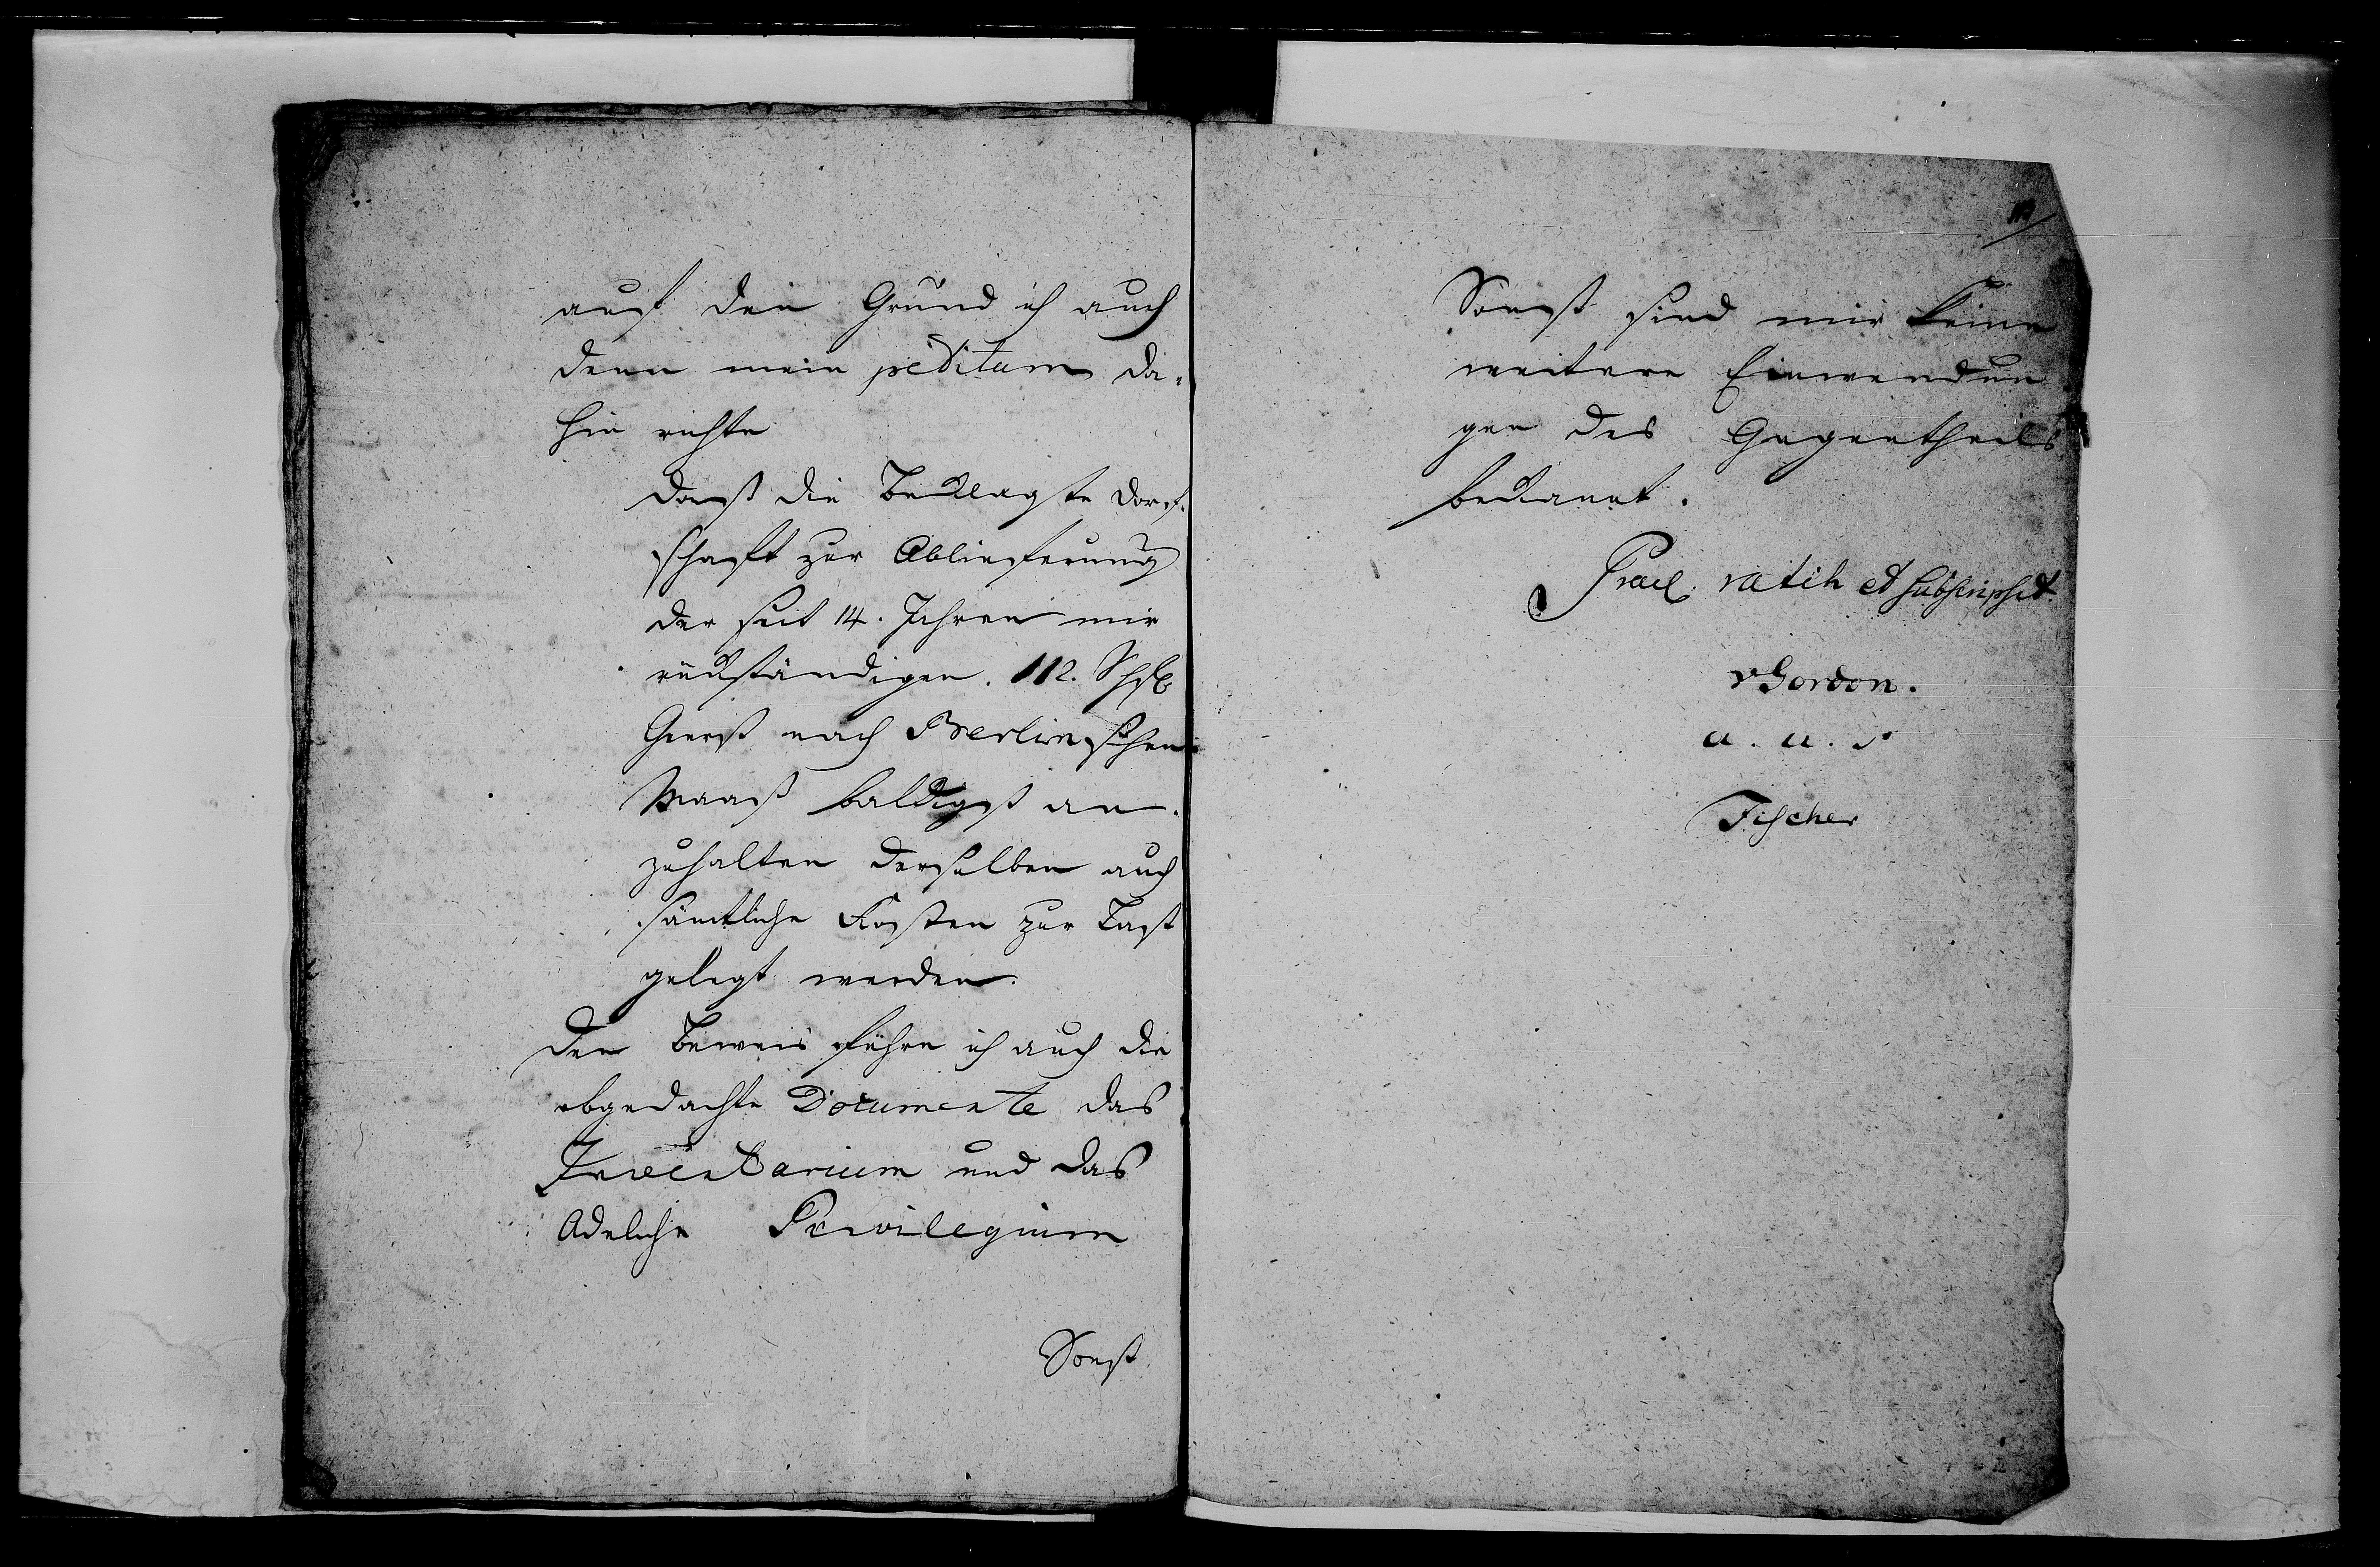 auf den Grund ich auch
denn mein petitum da-
hin richte
daß die Beklagte Dorf-
schaft zur Ablieferung
der seit 14. Jahren mir
rückständigen 112. Schfl
Gerst nach Berlinschen
Maaß baldigst an-
zuhalten derselben auch
sämtliche Kosten zur Last
gelegt werden.
Den Beweis führe ich auch die
obgedachte Documente das
Inventarium und das
Adeliche Privilegium
Sonst
Sonst sind mir keine
weitere Einwendun
gen des Gegentheils
bekannt.
Prael. ratih et subscripsit
vGordon.
a. u. s
Fischer